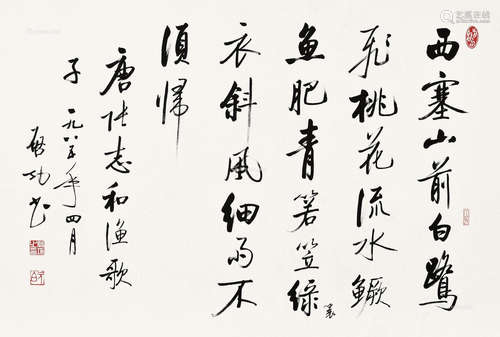 西塞山前白鹭
飞桃花流水鳜
鱼肥青箬笠绿蓑
衣斜风细雨不
须归
唐张志和渔歌
子 一九八三年四月
启功书